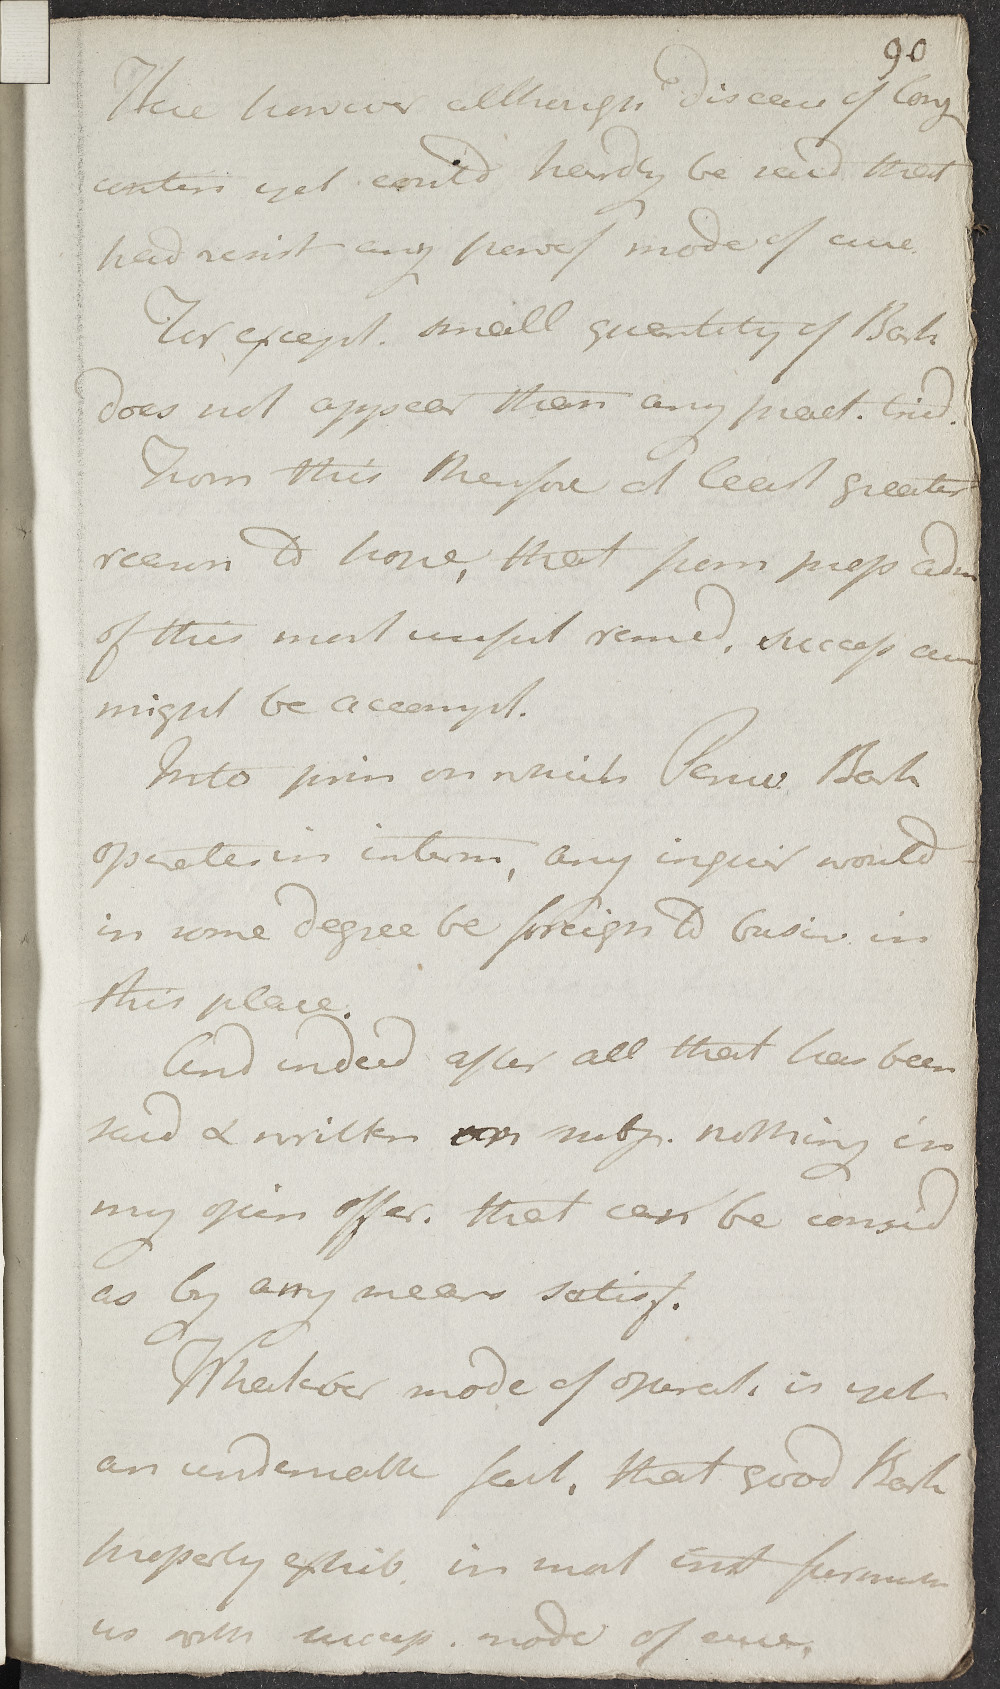 90
Here however although disease of long
contin yet could hardly be said that
had resist any powf mode of cure.
For except. small quantity of Bark
does not appear than any pract. tried.
From this therefore at least greater
reason to hope, that from prop adm
of this most useful remed, success cure
might be accompt.
Into prin on which Peruv Bark
operates in interm, any inquir would
in some degree be foreign to busin in
this place.
And indeed after all that has been
said & written on subj. nothing in
my opin offer. that can be consid
as by any means satisf.
Whatever mode of operat. is yet
an undeniable fact, that good Bark
properly exhib. in most inst furnish
us with succesf. mode of cure.